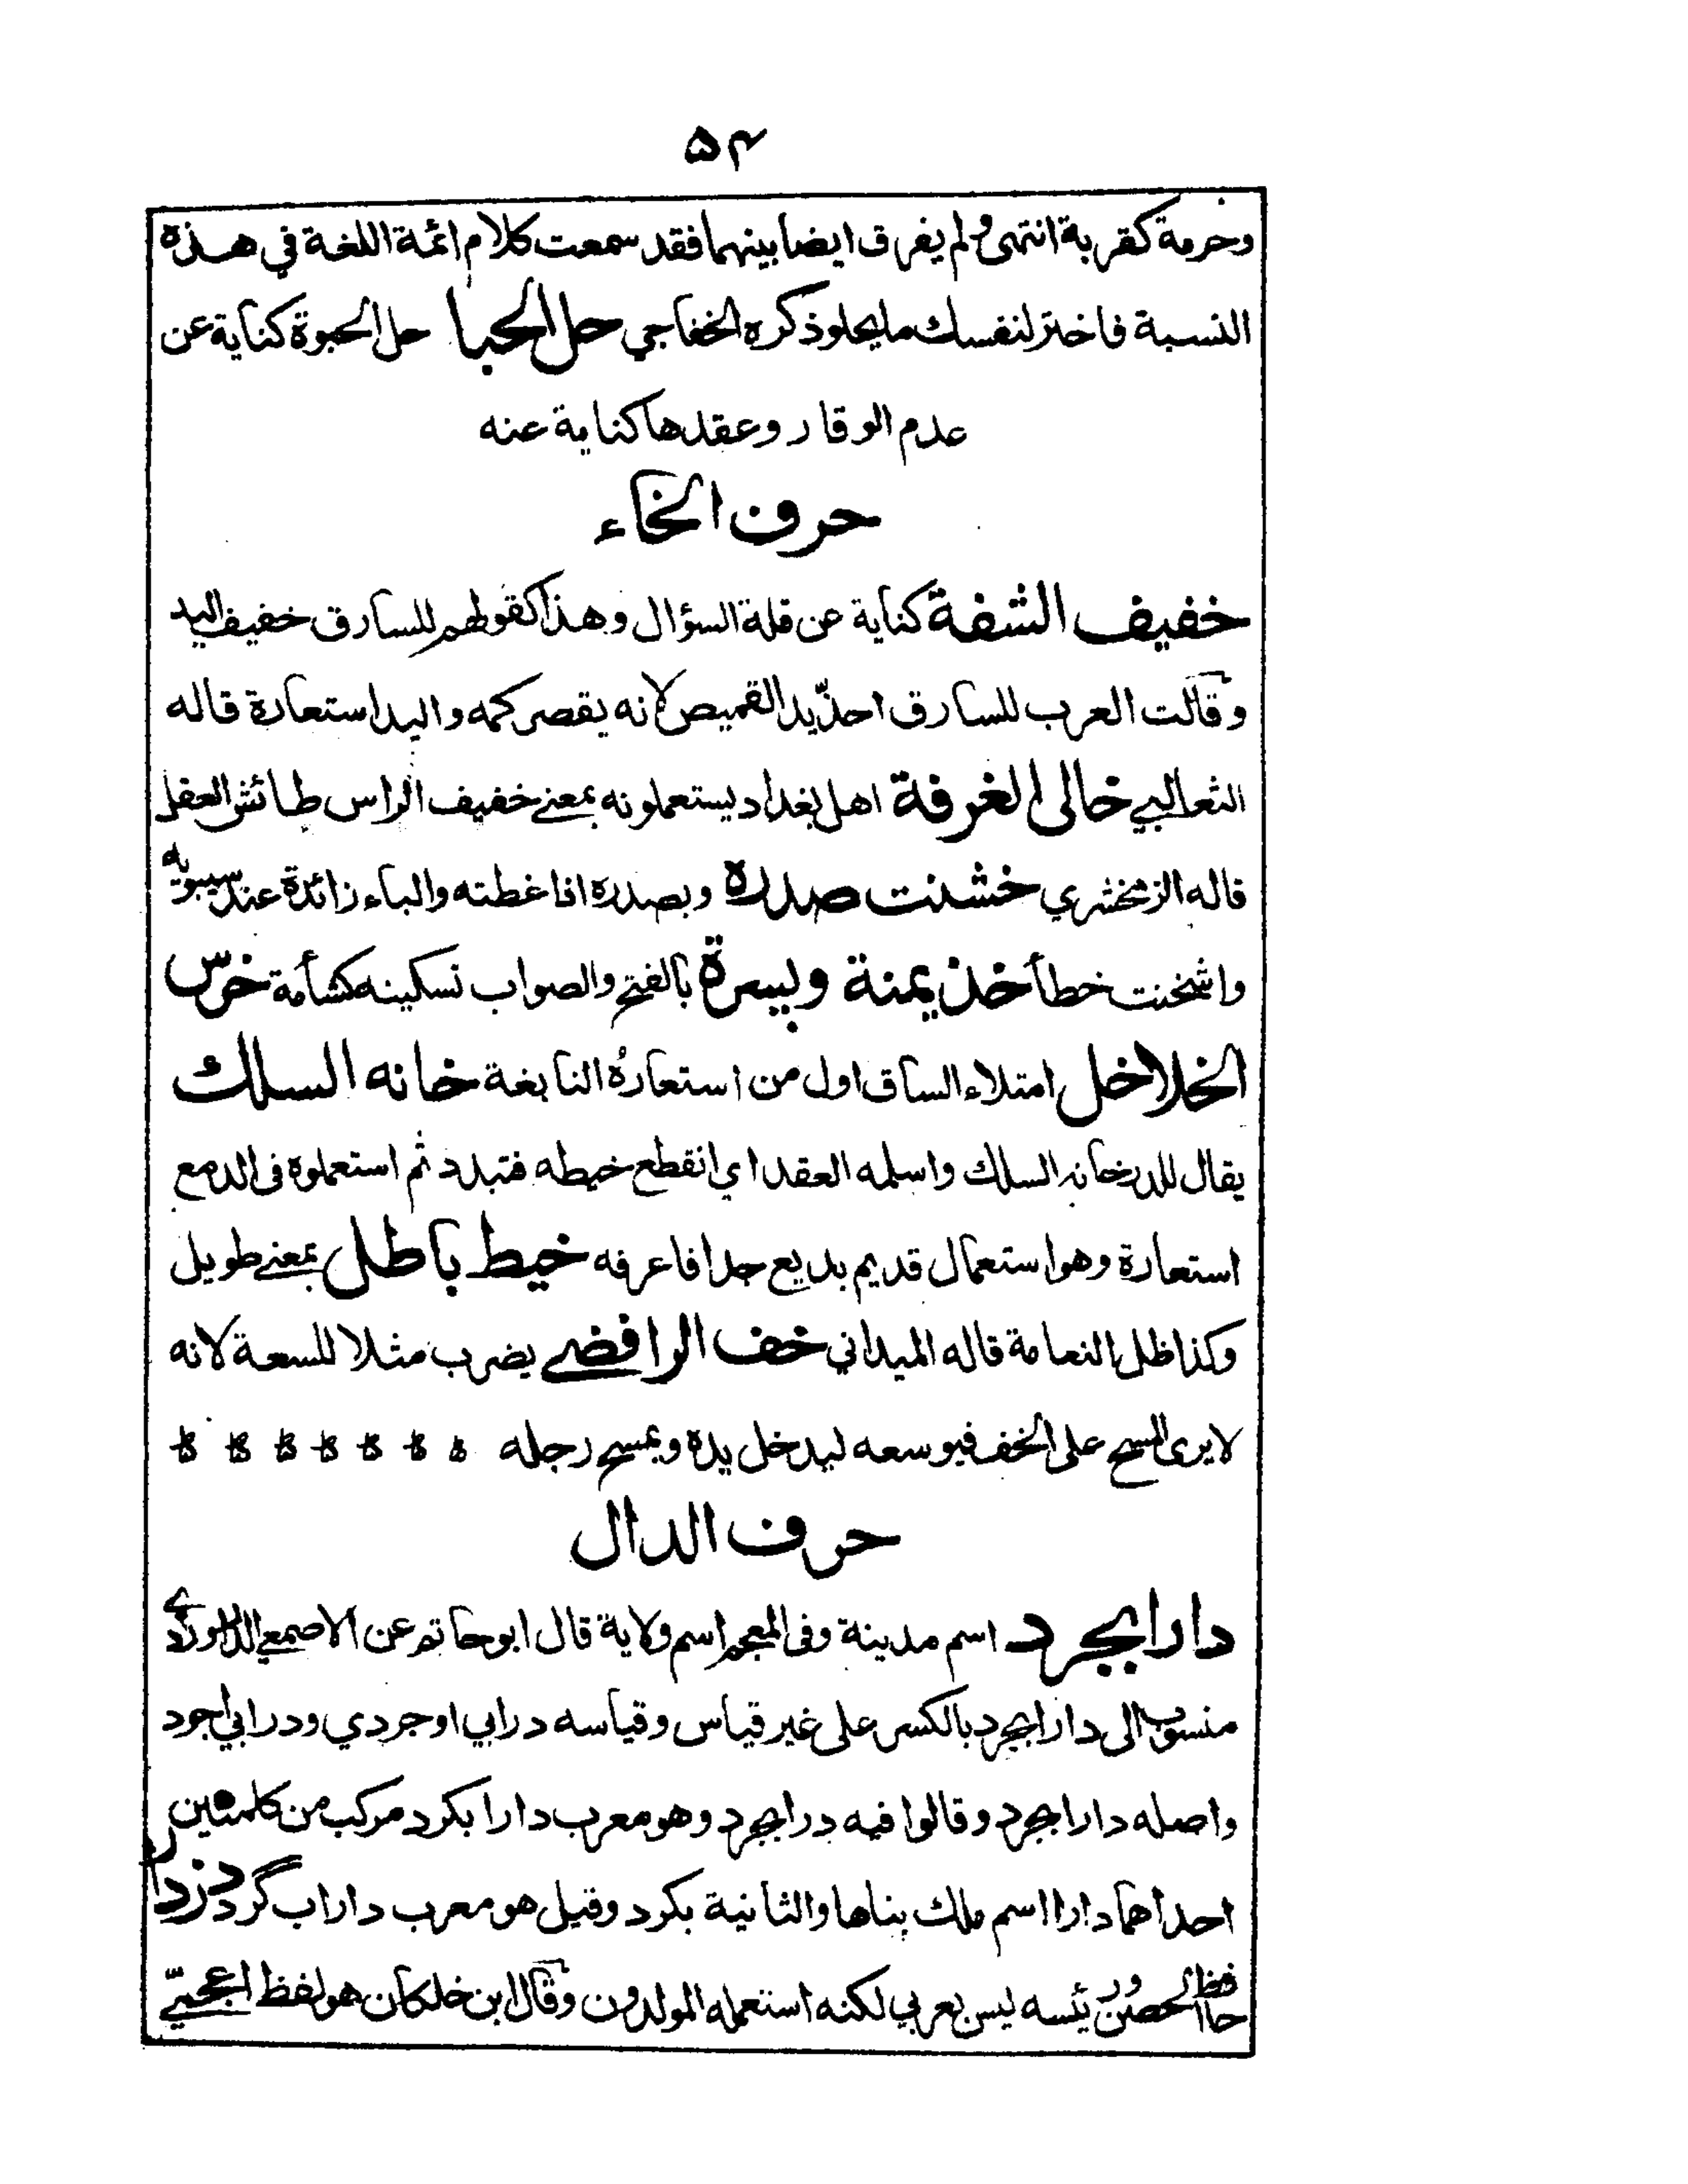 ۵۴
وخرمة كقربة انتهى ولم يفرق ايضا بينهما فقد سمعت كلام ائمة اللغة في هذه
النسبة فاختر لنفسك مايحلو ذكره الخفاجي حل الحبا حل الحبوة كناية عن
عدم الوقار وعقدها كناية عنه
حرف الخاء
خفيف الشفة كناية عن قلة السؤال وهذا كقولهم للسارق خفيف اليد
وقالت العرب للسارق احذّ يد القميص لانه يقصر كمه واليد استعارة قاله
الثعالبي خالى الغرفة اهل بغداد يستعملونه بمعنے خفيف الراس طائش العقل
قاله الزمخشري خشنت صدره وبصدره اذا غطته والباء زائدة عند سيبويه
واشخنت خطأ خذ يمنة ويسرة بالفتح والصواب تسكينه كشأمة خرس
الخلاخل امتلاء الساق اول من استعاره النابغة خانه السلك
يقال للدر خانه السلك واسلمه العقد اي انقطع خيطه فتبدد ثم استعملوه فى الدمع
استعارة وهو استعمال قديم بديع جدا فاعرفه خيط باطل بمعنے طويل
وكذا ظل النعامة قاله الميداني خف الرافضے يضرب مثلا للسعة لانه
لايرى المسح على الخف فيوسعه ليدخل يده ويمسح رجله
حرف الدال
دارابجرد اسم مدينة وفى المعجم اسم ولاية قال ابو حاتم عن الاصمعي الدراوردے
منسوب الى دارابجرد بالكسر على غير قياس وقياسه درابي او جردي ودرابي اجود
واصله دارابجرد وقالوا فيه درابجرد وهو معرب دارا بكرد مركب من كلمتين
احداهما دارا اسم ملك بناها والثانية بكرد وقيل هو معرب داراب گرد دزدار
حافظ الحصن ورئيسه ليس بعربي لكنه استعمله المولدون وقال ابن خلكان هو لفظ اعجميّے